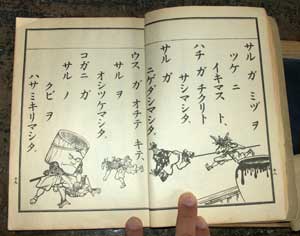 サル ガ ミヅ ヲ
ツケニ
イキマスト、
ハチ ガ チクリト
サシマシタ。
サル ガ
ニゲダシマシタ。
ウス ガ オチテ キテ、
サル ヲ
オシツケマシタ。
コガニ ガ
サル ノ
クビ ヲ
ハサミキリマシタ。